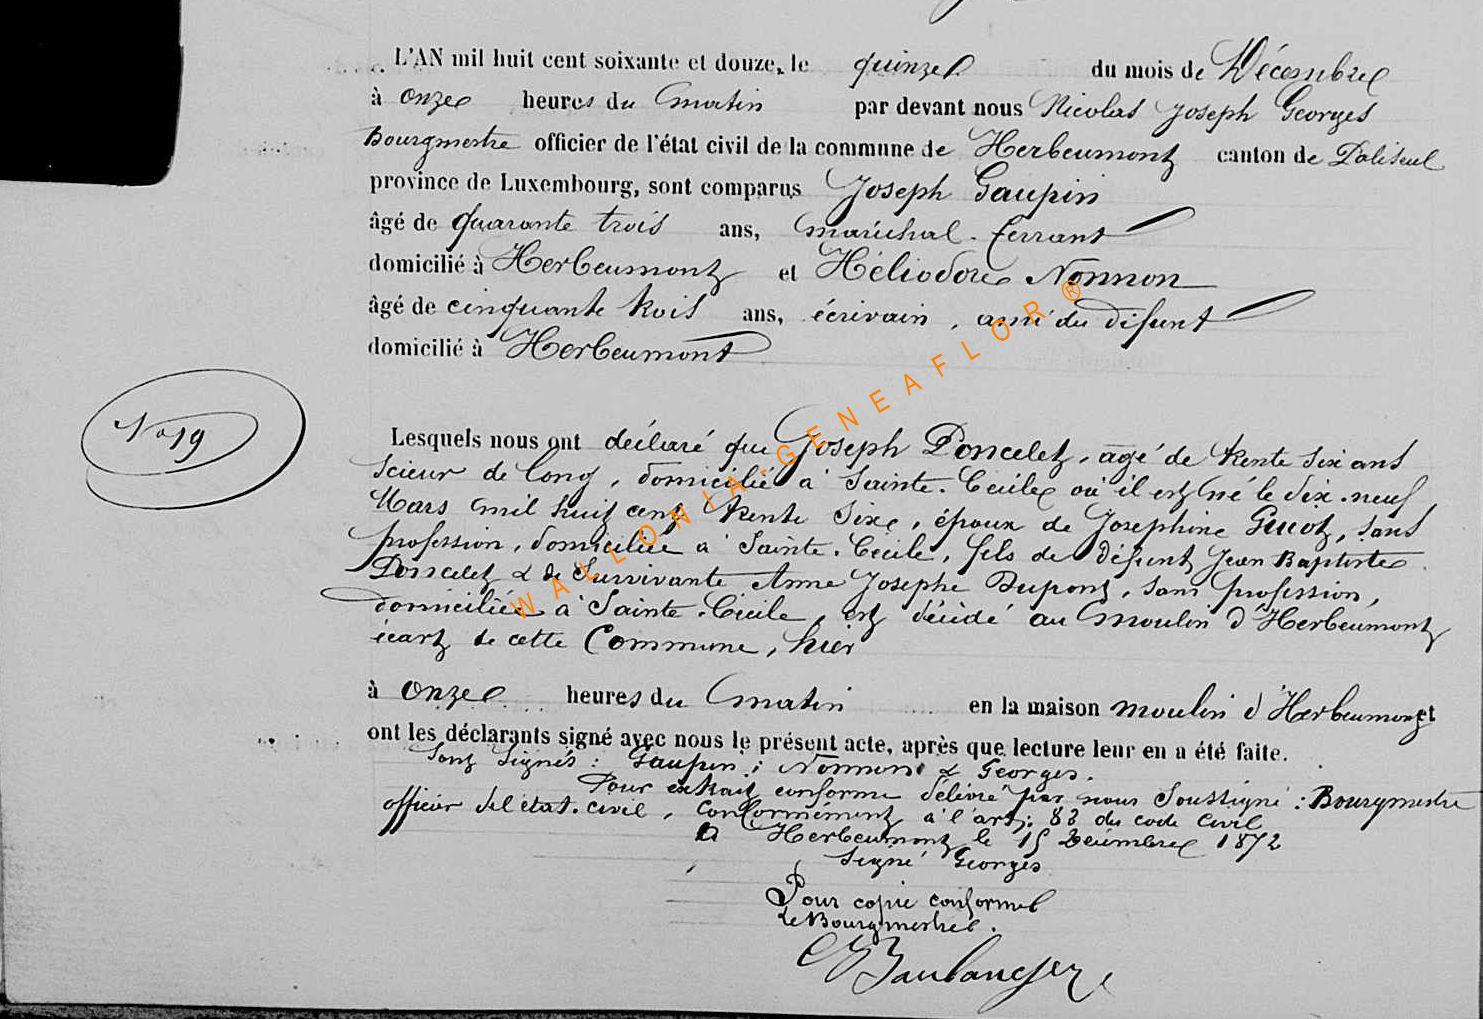 L'AN mil huit cent soixante et douze, le quinze du mois de Décembre
à onze heures du matin par devant nous Nicolas Joseph Georges
Bourgmestre officier de l'état civil de la commune de Herbeumont canton de Paliseul
province de Luxembourg, sont comparus Joseph Gaupin
âgé de quarante trois ans, maréchal-ferrant
domicilié à Herbeumont et Héliodore Nonnon
âgé de cinquante trois ans, écrivain, ami du défunt
domicilié à Herbeumont
No 19
Lesquels nous ont déclaré que Joseph Poncelet, agé de trente six ans
scieur de long, domicilié à Sainte-Cécile où il est né le dix-neuf
Mars mil huit cent trente six, époux de Josephine Guiot, sans
profession, domiciliée à Sainte-Cécile, fils de défunt Jean Baptiste
Poncelet & de Survivante Anne Josephe Dupont, sans profession,
domiciliée à Sainte-Cécile, est décédé au moulin d'Herbeumont
écart de cette Commune, hier
à onze heures du matin en la maison moulin d'Herbeumont et
ont les déclarants signé avec nous le présent acte, après que lecture leur en a été faite.
Sont Signés : Gaupin ; Nonnon & Georges.
Pour extrait conforme délivré par nous Soussigné : Bourgmestre
officier de l'état-civil, conformément à l'art: 82 du code Civil
à Herbeumont le 15 Décembre 1872
Signé Georges
Pour copie conforme
Le Bourgmestre.
WALLONIA-GENEAFLOR®